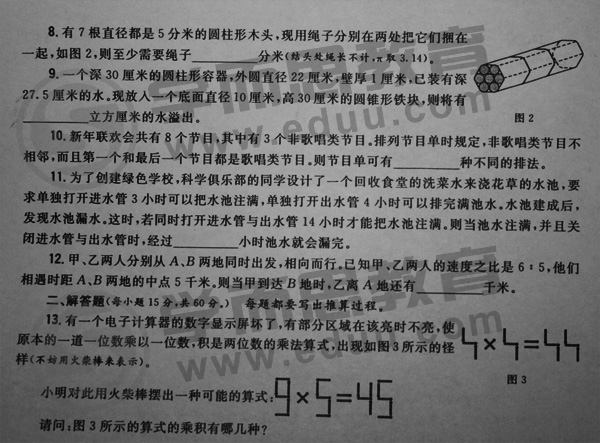 8. 有 7 根直径都是 5 分米的圆柱形木头,现用绳子分别在两处把它们捆在
一起,如图 2,则至少需要绳子________分米(结头处绳长不计,π取 3.14)。
9. 一个深 30 厘米的圆柱形容器,外圆直径 22 厘米,壁厚 1 厘米,已装有深
27.5 厘米的水。现放人一个底面直径 10 厘米,高 30 厘米的圆锥形铁块,则将有
________立方厘米的水溢出。
图 2
10. 新年联欢会共有 8 个节目,其中有 3 个非歌唱类节目。排列节目单时规定,非歌唱类节目不
相邻,而且第一个和最后一个节目都是歌唱类节目。则节目单可有________种不同的排法。
11. 为了创建绿色学校,科学俱乐部的同学设计了一个回收食堂的洗菜水来浇花草的水池,要
求单独打开进水管 3 小时可以把水池注满,单独打开出水管 4 小时可以排完满池水。水池建成后,
发现水池漏水。这时,若同时打开进水管与出水管 14 小时才能把水池注满。则当池水注满,并且关
闭进水管与出水管时,经过________小时池水就会漏完。
12. 甲、乙两人分别从 A、B 两地同时出发,相向而行。已知甲、乙两人的速度之比是 6:5,他们
相遇时距 A、B 两地的中点 5 千米。则当甲到达 B 地时,乙离 A 地还有________千米。
二、解答题(每小题 15 分,共 60 分。) 每题都要写出推算过程。
13. 有一个电子计算器的数字显示屏坏了,有部分区域在该亮时不亮,使
原本的一道一位数乘以一位数,积是两位数的乘法算式,出现如图 3 所示的怪
样(不妨用火柴棒来表示)。
图 3
小明对此用火柴棒摆出一种可能的算式:9×5=45
请问:图 3 所示的算式的乘积有哪几种?
学而思教育
www.eduu.com